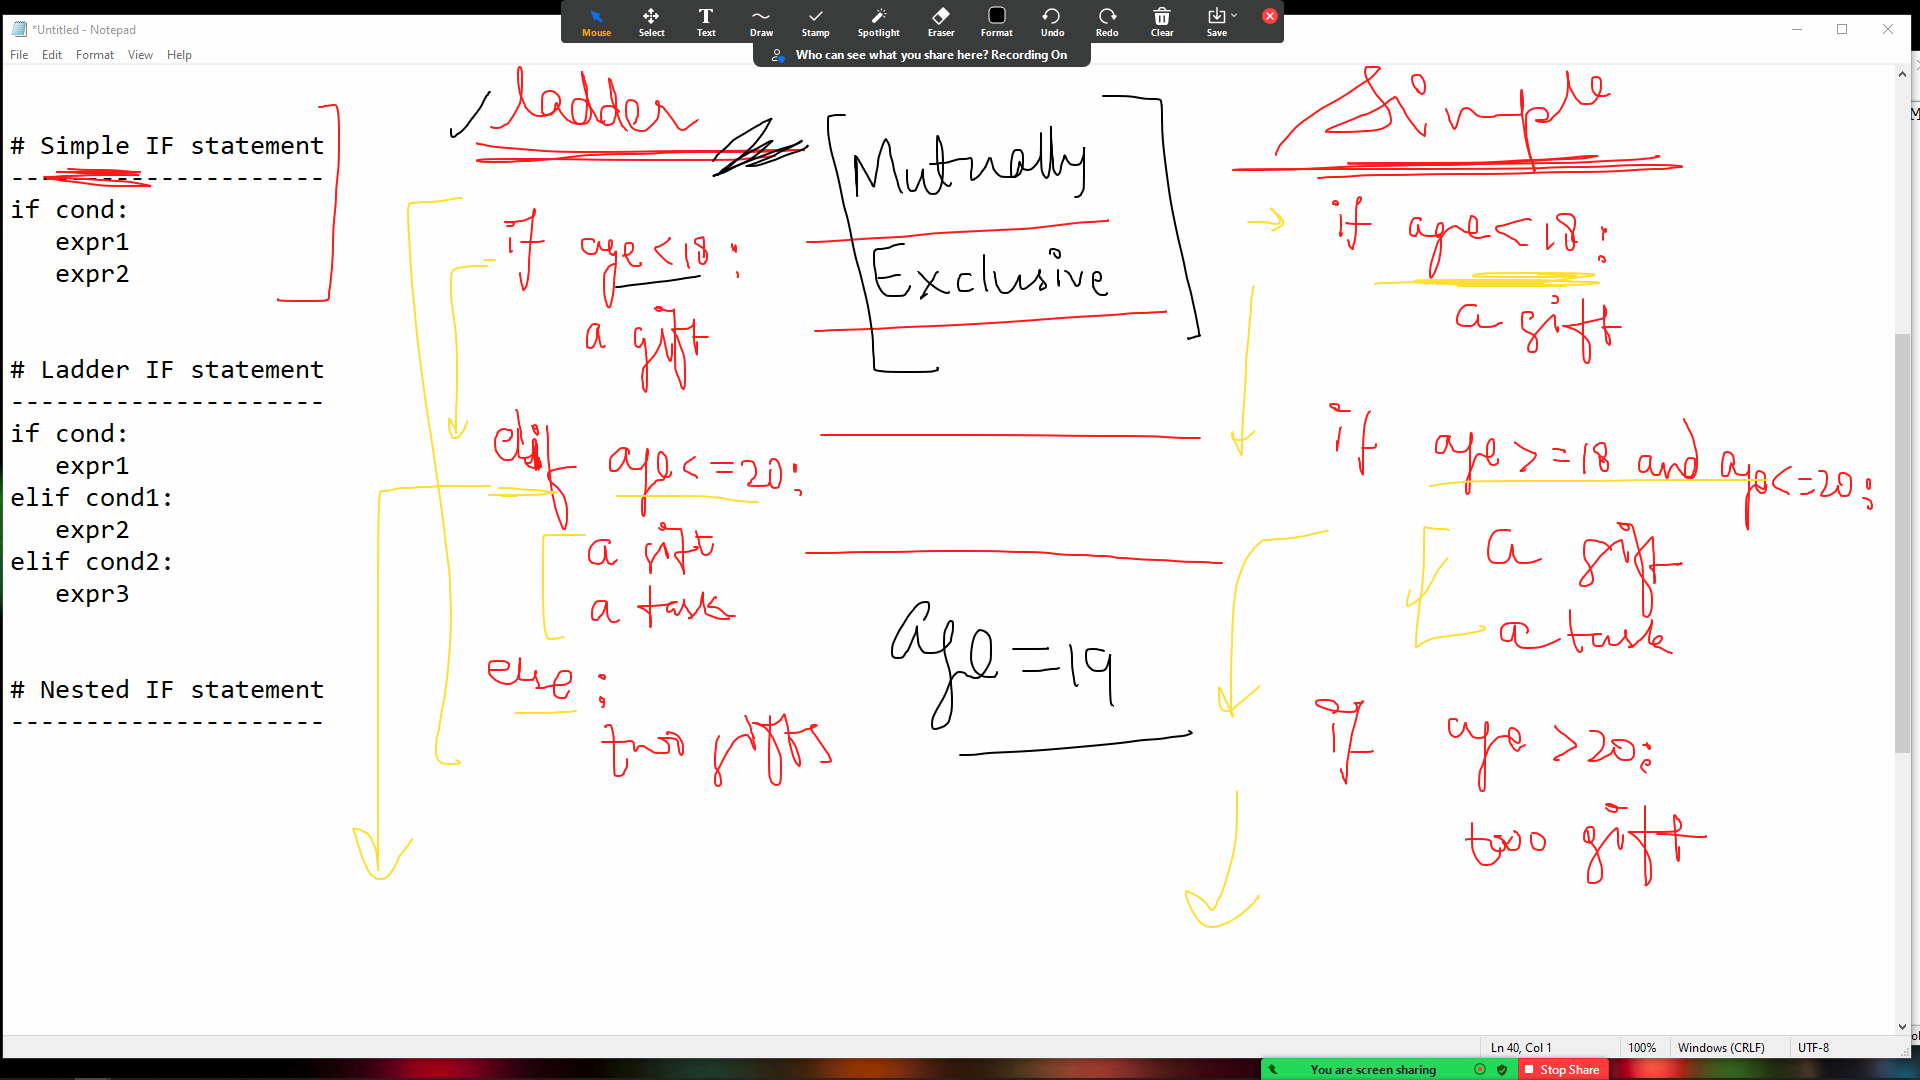 *Untitled - Notepad
Mouse Select Text Draw Stamp Spotlight Eraser Format Undo Redo Clear Save
Who can see what you share here? Recording On
File Edit Format View Help
# Simple IF statement
---------------------
if cond:
   expr1
   expr2
# Ladder IF statement
---------------------
if cond:
   expr1
elif cond1:
   expr2
elif cond2:
   expr3
# Nested IF statement
---------------------
ladder
if age<18:
a gift
elif age<=20:
a gift
a task
else:
two gifts
Mutually
Exclusive
age=19
Simple
if age<18:
a gift
if age>=18 and age<=20:
a gift
a task
if age>20:
two gift
Ln 40, Col 1 100% Windows (CRLF) UTF-8
You are screen sharing Stop Share